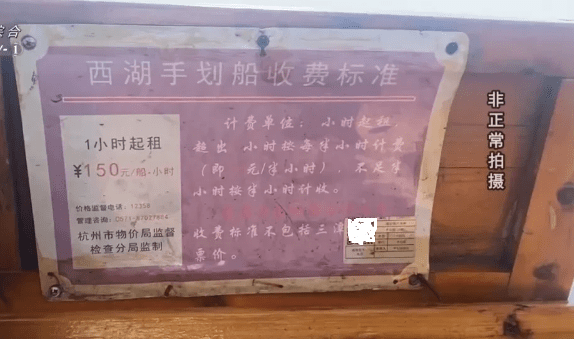 综合
西湖手划船收费标准
1小时起租
¥150元/船·小时
价格监督电话：12358
管理咨询：0571-87027864
杭州市物价局监督
检查分局监制
计费单位： 小时起租，
超出 小时按每半小时计费
（即 元/半小时），不足半
小时按半小时计收。
收费标准不包括三潭
票价。
非正常拍摄